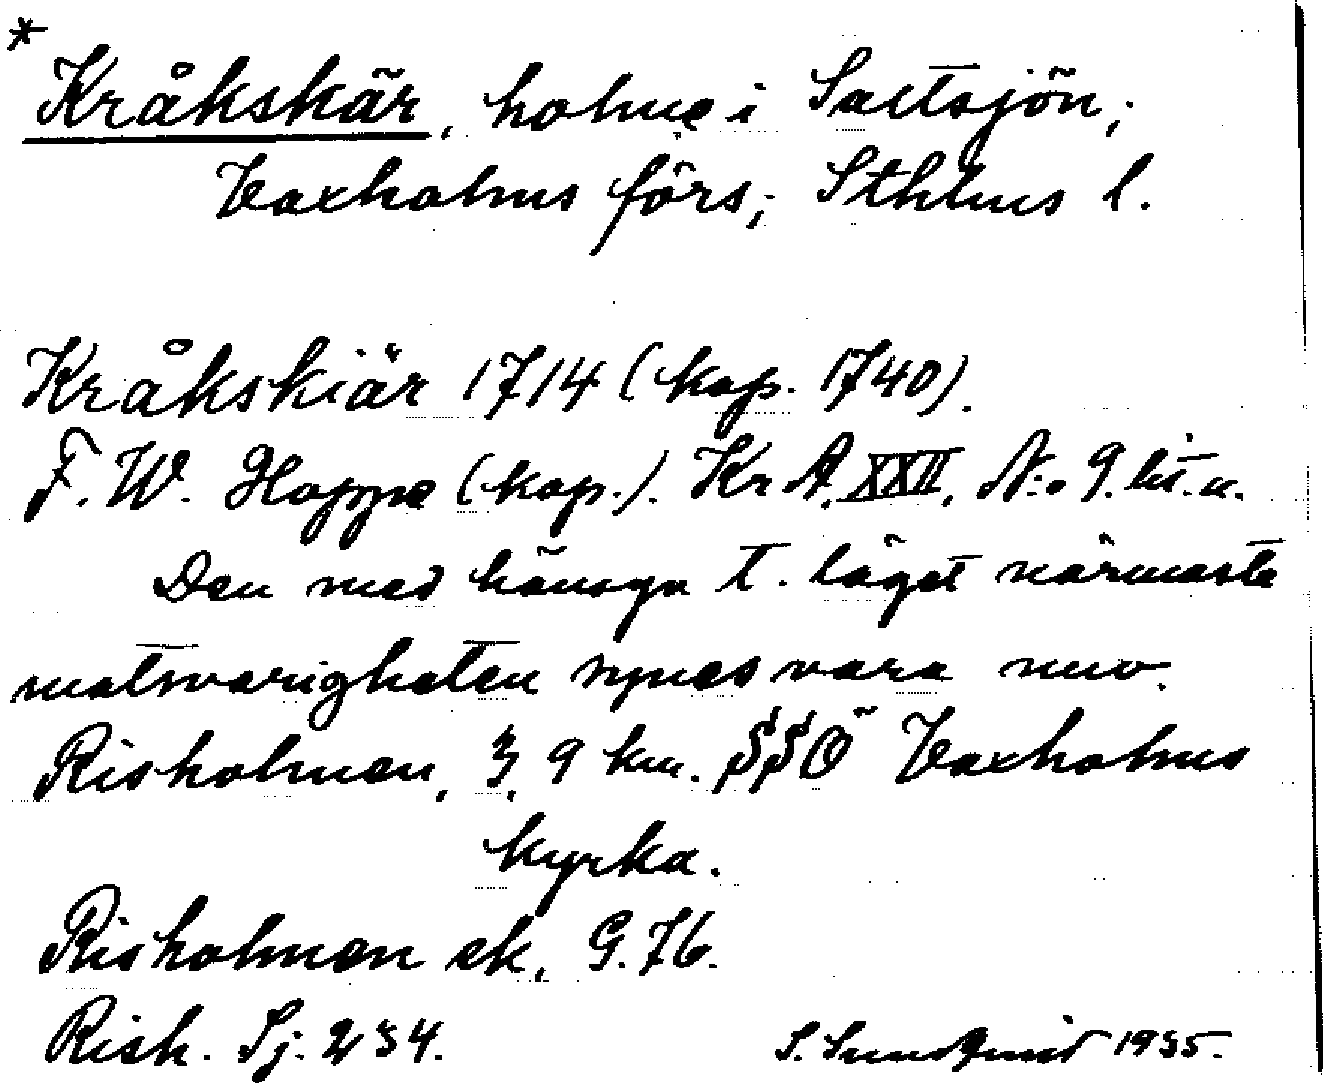 * Kråkskär, holme i Saltsjön,
Vaxholms förs; Sthlms l.
Kråkskiär 1714 (kop. 1740).
F. W. Hoppe (kop.). Kr A, XXII, N:o 9. lit. u.
Den med hänsyn t. läget närmaste
motsvarigheten synes vara nuv.
Risholmen, 3,9 km. SSÖ Vaxholms
kyrka.
Risholmen ek, G. 76.
Rish. Sj. 234.
S. Sundquist 1935.